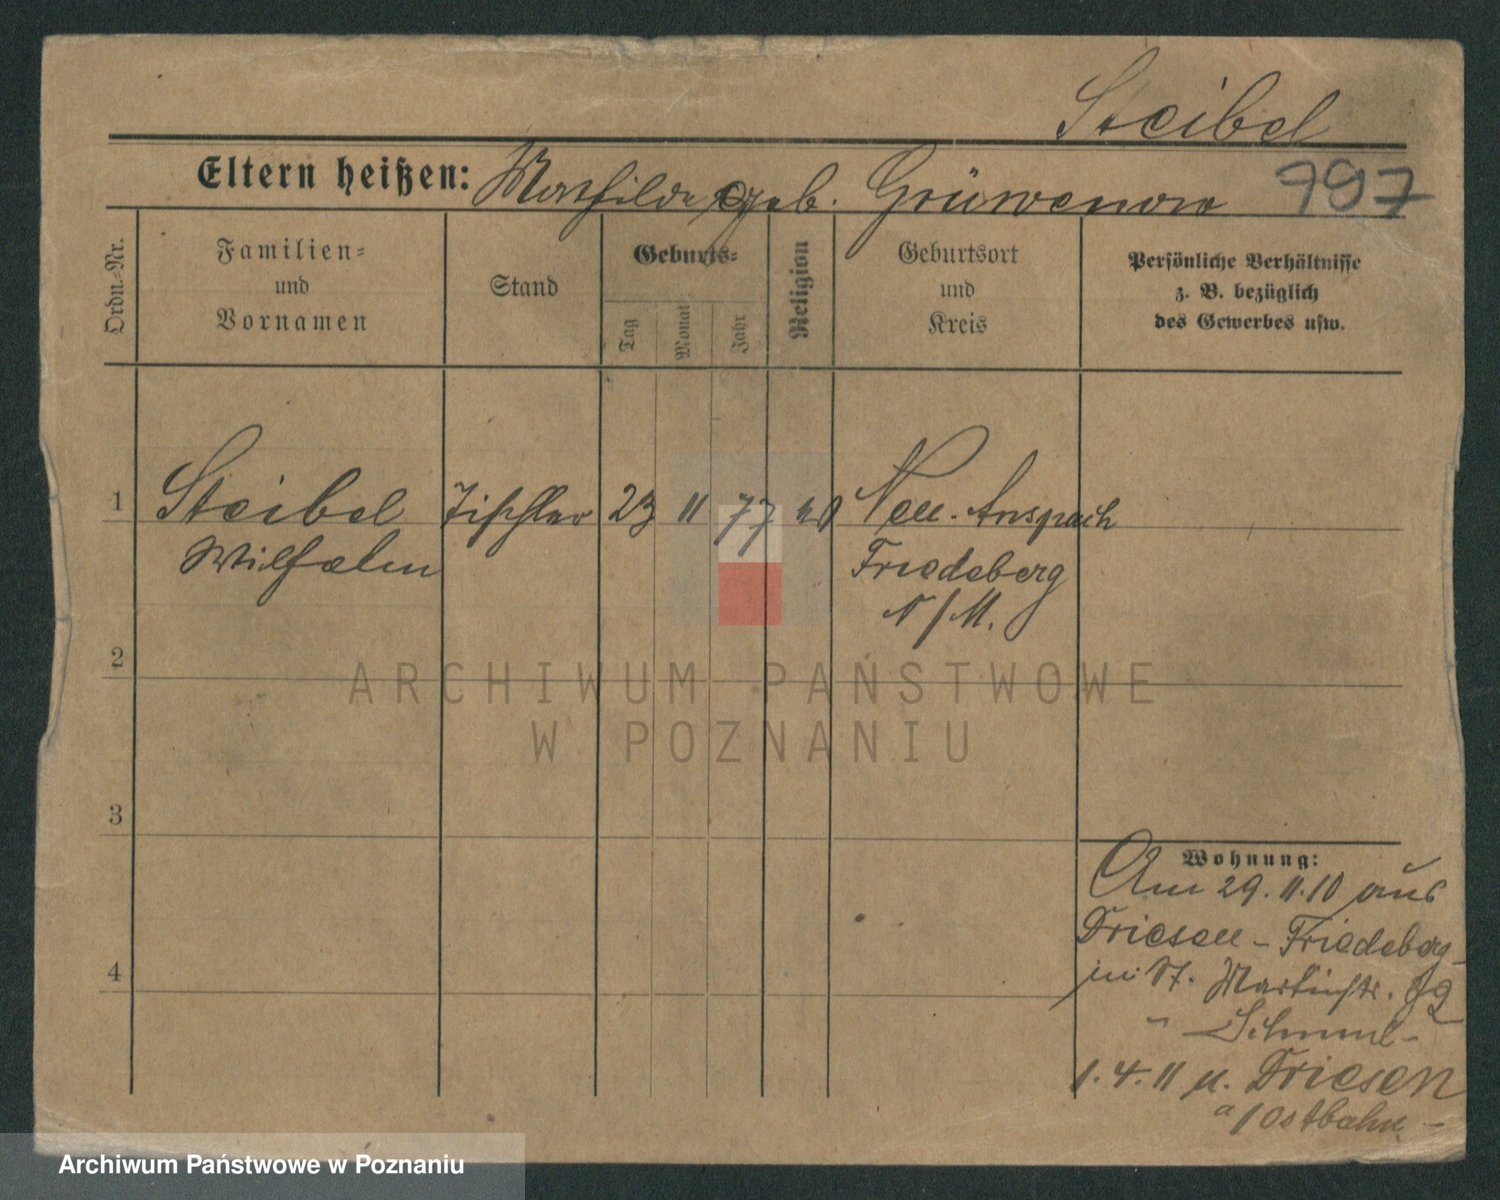 Steibel
Eltern heißen: Mathilde geb. Grüwenow
797
Ordn.-Nr.
Familien-
und
Vornamen
Stand
Geburts-
Tag
Monat
Jahr
Religion
Geburtsort
und
Kreis
Persönliche Verhältnisse
z. B. bezüglich
des Gewerbes usw.
1 Steibel Tischler 23 11 77 Neu-Anspach
Wilhelm Friedeberg
N/M.
2
3
4
Wohnung:
Am 29.11.10 aus
Driesen - Friedeberg
in St. Martinstr.
1.4.11 n. Driesen
a/Ostbahn
ARCHIWUM PAŃSTWOWE
W POZNANIU
Archiwum Państwowe w Poznaniu